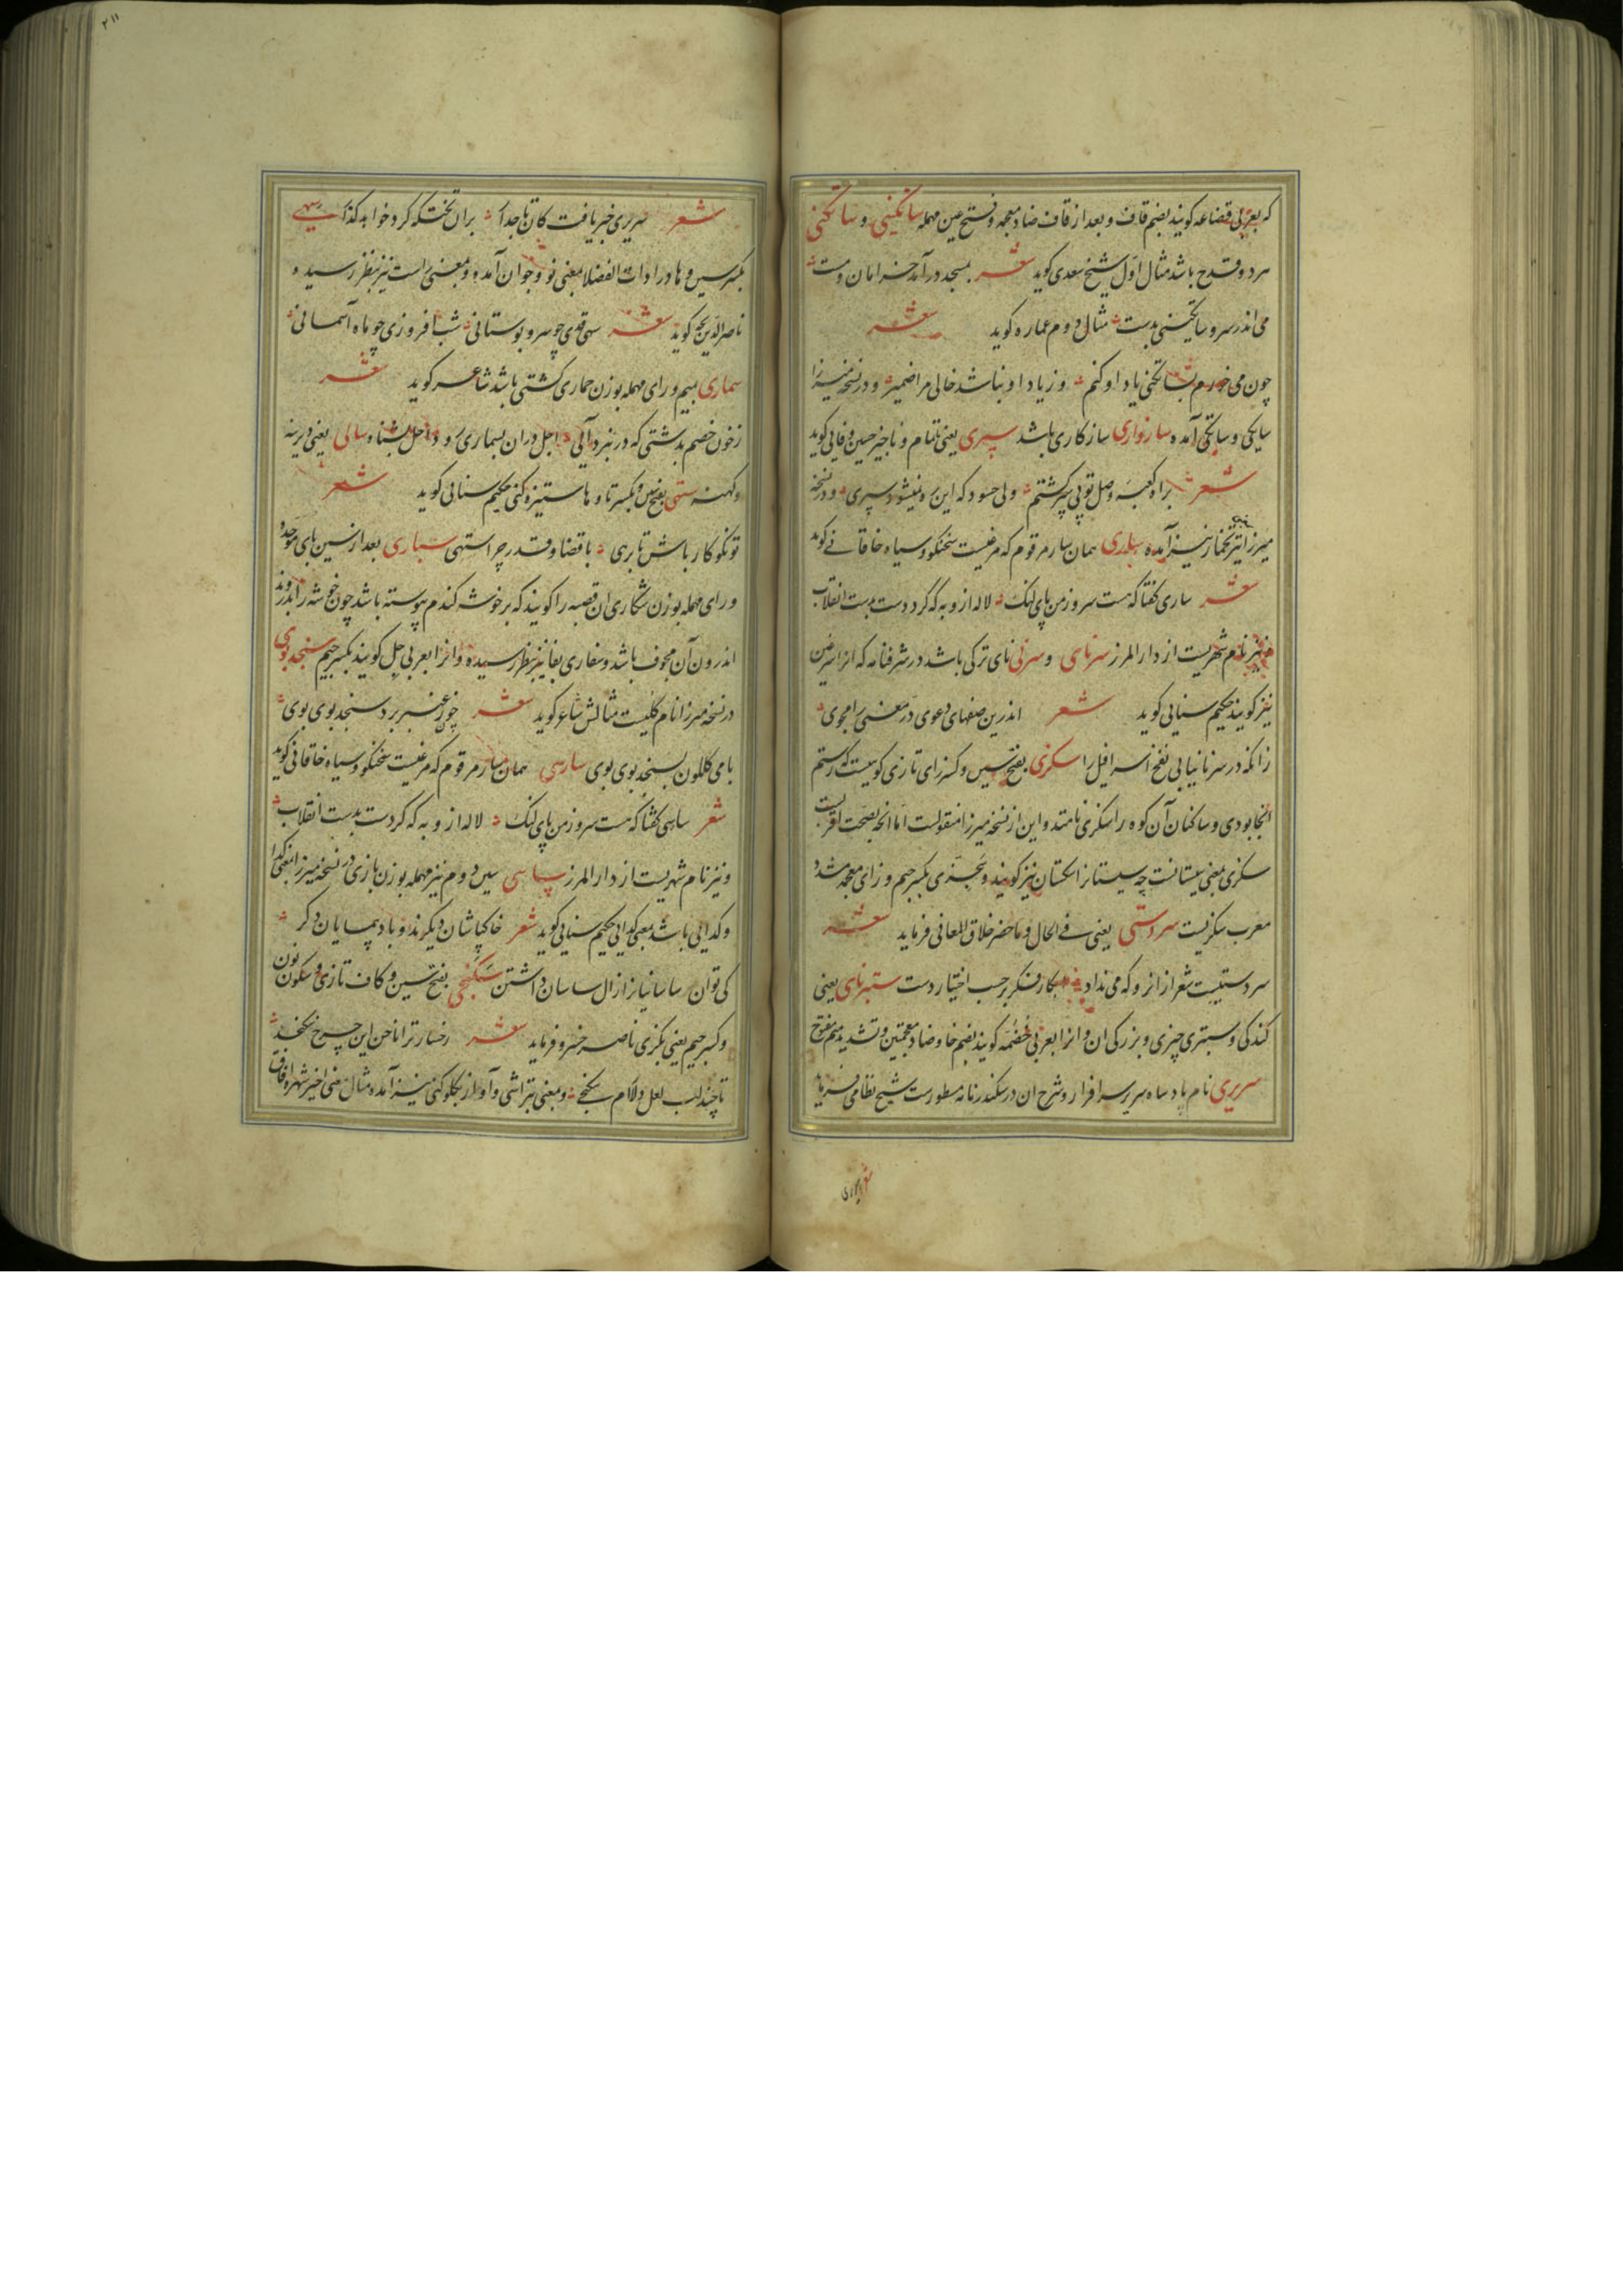 که بعربی قضاعه کویند بضم قاف و بعد از قاف ضاد معجمه و فتح عین مهمله ساتکینی و ساتکنی
هردو قدح باشد مثال اول شیخ سعدی کوید شعر بمسجد درآمد خرامان و مست
می اندر سر و ساتکینی بدست مثال دوم عماره کوید شعر
چون می خورم بساتکنی یاد او کنم وز یاد او نباشد خالی مرا ضمیر و در نسخه میرزا
سایکی و ساتکی آمده سازواری سازکاری باشد سپری یعنی ناتمام و ناچیز حسین وفایی کوید
شعر براه کعبه وصل تو پی سپر کشتم ولی حسود که این ره نمیشود سپری و در نسخه
میرزا تیر تخمار نیز آمده ساری همان سار مرقوم که مرغیست سخنکو و سیاه خاقانی کوید
شعر ساری کفتا که هست سرو ز من پای لنک لاله ازو به که کرد دست بدست انقلاب
و نیز نام شهریست از دار المرز سرنای و سرنی نای ترکی باشد در شرفنامه که انرا سرغین
نیز کویند حکیم سنایی کوید شعر اندرین صفهای دعوی در معنی را مجوی
زانکه در سرنا نیابی نفخ اسرافیل را سکزی بفتح سین و کسر زای تازی کوهیست که رستم
انجا بودی و ساکنان آن کوه را سکزی نامند و این از نسخه میرزا منقولست اما انچه بصحت اقربست
سکزی بمعنی سیستانیست چه سیستانرا سکستان نیز کویند و سجزی بکسر جیم و زای معجمه مشدد
معرب سکزیست سردستی یعنی فی الحال و ماحضر خلاق المعانی فرماید شعر
سر دستیست شعر از انرو که می نداد بکار فکر بر حسب اختیار دست ستبرنای یعنی
کندکی و ستبری چیزی و بزرکی ان و انرا بعربی خضمه کویند بضم خا و ضاد معجمتین و تشدید میم مفتوح
سریری نام پادشاه سریر سرافراز و شرح ان در سکندرنامه مسطورست شیخ نظامی فرماید
شعر سریری خبر یافت کان تاجدار بران تختکه کرد خواهد کذار سهی
بکسر سین و ها در ادات الفضلا بمعنی نو و جوان آمده و بمعنی راست نیز بنظر رسیده
ناصر الدین بجه کوید شعر سهی قدی چو سرو بوستانی شب افروزی چو ماه آسمانی
سماری بمیم و رای مهمله بوزن حماری کشتی باشد شاعر کوید شعر
ز خون خصم بدشتی که در نبرد آیی اجل دران بسماری رود اجل بشنا و سالی یعنی دیرینه
و کهنه ستهی بفتح سین و بکسر تا و ها ستیزه کنی حکیم سنایی کوید شعر
تو نکوکار باش تا برهی با قضا و قدر چرا ستهی سباری بعد از سین بای موحده
و رای مهمله بوزن شکاری ان قصبه را کویند که بر خوشه کندم پیوسته باشد چون خوشه را بدروند
اندرون آن مجوف باشد و سفاری بفا نیز بنظر رسیده و انرا بعربی جل کویند بکسر جیم سنجدبوی
در نسخه میرزا نام کلیست مثالش شاعر کوید شعر چون عنبر برد سنجد بوی بوی
با می کلکون بسنجد بوی بوی سارسی همان سار مرقوم که مرغیست سخنکو و سیاه خاقانی کوید
شعر ساسی کفتا که هست سرو ز من پای لنک لاله ازو به که کردست بدست انقلاب
و نیز نام شهریست از دار المرز سپاسی سین دوم نیز مهمله بوزن بازی در نسخه میرزا بمعنی کدا
و کدایی باشد بمعنی کدایی حکیم سنایی کوید شعر خاکپاشان دیکرند و بادپیمایان دکر
کی توان ساسانیانرا ز ال ساسان داشتن سکنجی بفتح سین و کاف تازی و سکون نون
و کسر جیم یعنی بکزی ناصر خسرو فرماید شعر رخسار ترا ناخن این چرخ شکنجد
تا چند لب لعل دلارام سکنجی و بمعنی بتراشی و آواز بکلو کنی نیز آمده مثال معنی اخیر شهره آفاق